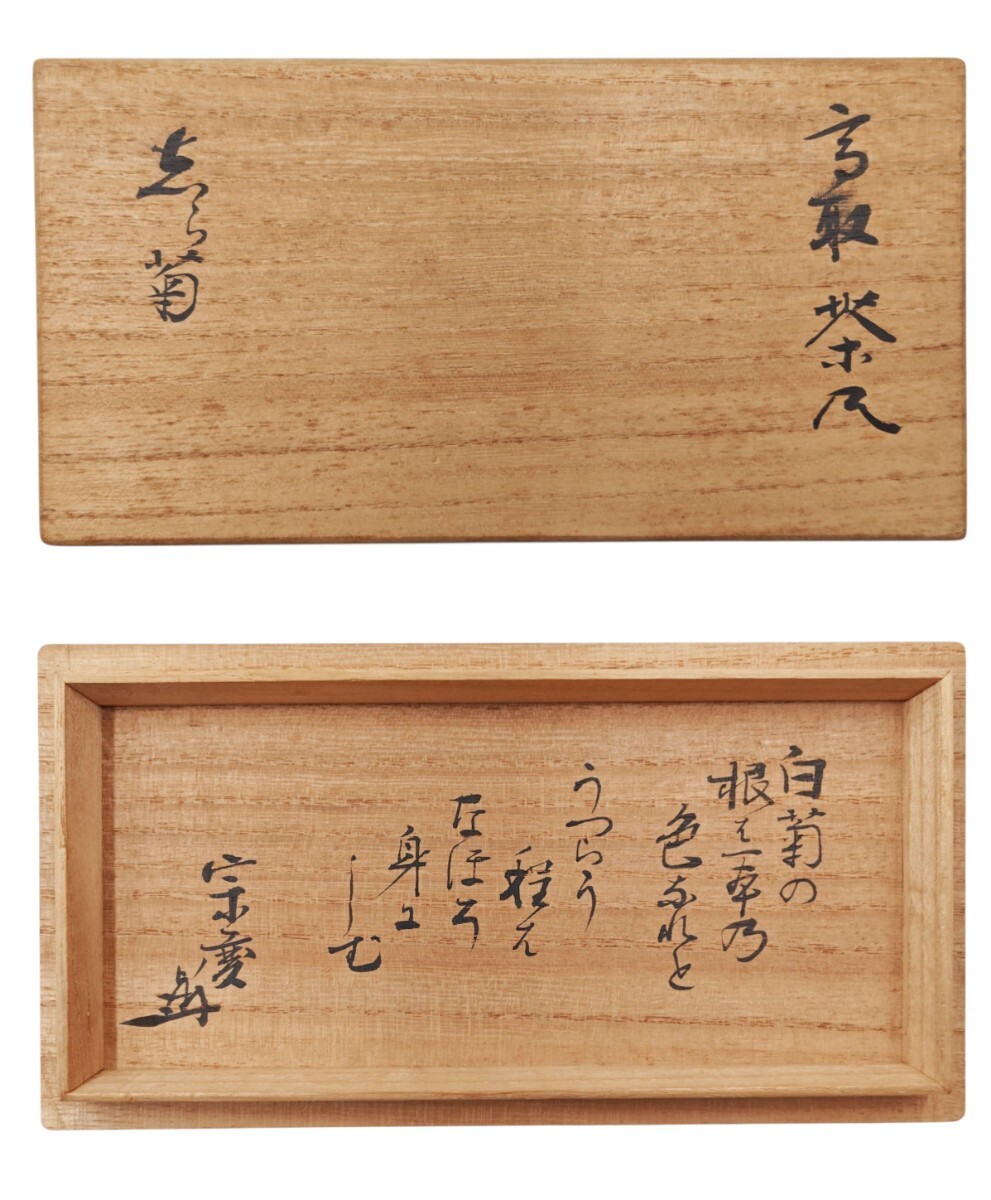 高取 茶入
志ら菊
白菊の
根は一本乃
色なれと
うつろう
程は
なほそ
身に
しむ
宗慶